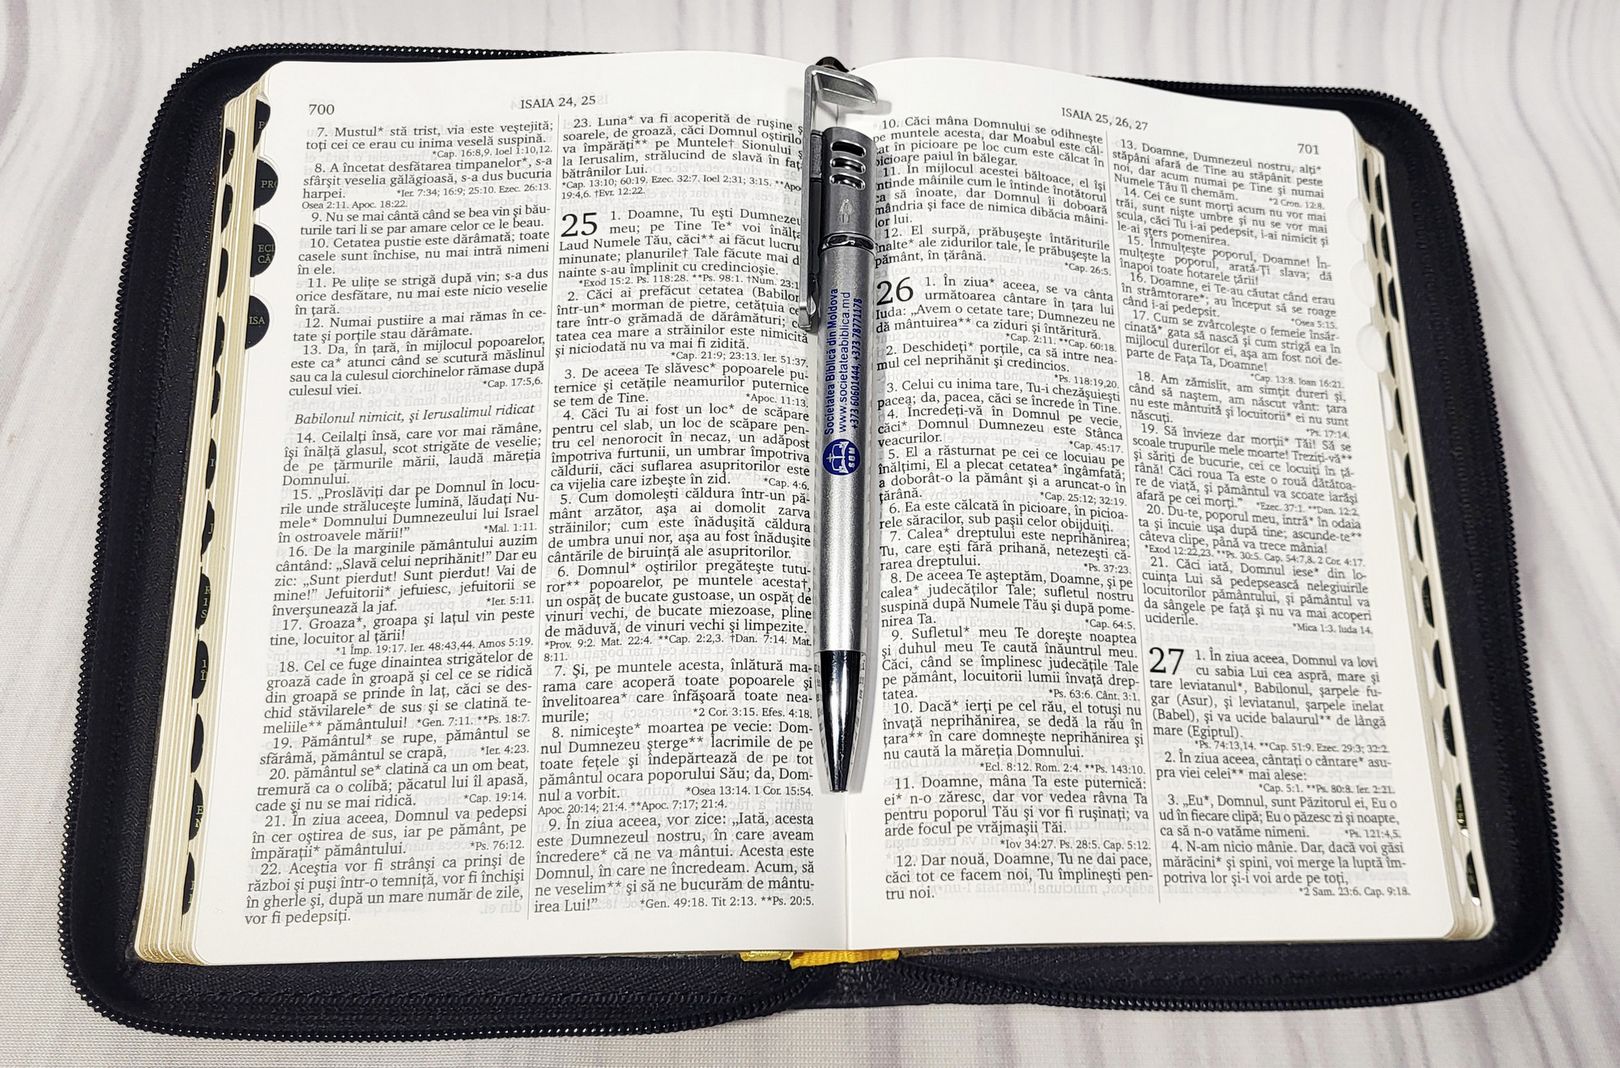 700
ISAIA 24, 25
7. Mustul* stă trist, via este veștejită;
toți cei ce erau cu inima veselă suspină.
*Cap. 16:8,9. Ioel 1:10,12.
8. A încetat desfătarea timpanelor*, s-a
sfârșit veselia gălăgioasă, s-a dus bucuria
harpei.
*Ier. 7:34; 16:9; 25:10. Ezec. 26:13.
Osea 2:11. Apoc. 18:22.
9. Nu se mai cântă când se bea vin și bău-
turile tari li se par amare celor ce le beau.
10. Cetatea pustie este dărâmată; toate
casele sunt închise, nu mai intră nimeni
în ele.
11. Pe ulițe se strigă după vin; s-a dus
orice desfătare, nu mai este nicio veselie
în țară.
12. Numai pustiire a mai rămas în ce-
tate și porțile stau dărâmate.
13. Da, în țară, în mijlocul popoarelor,
este ca* atunci când se scutură măslinul
sau ca la culesul ciorchinelor rămase după
culesul viei.
*Cap. 17:5,6.
Babilonul nimicit, și Ierusalimul ridicat
14. Ceilalți însă, care vor mai rămâne,
își înalță glasul, scot strigăte de veselie;
de pe țărmurile mării, laudă măreția
Domnului.
15. „Proslăviți dar pe Domnul în locu-
rile unde strălucește lumină, lăudați Nu-
mele* Domnului Dumnezeului lui Israel
în ostroavele mării!”
*Mal. 1:11.
16. De la marginile pământului auzim
cântând: „Slavă celui neprihănit!” Dar eu
zic: „Sunt pierdut! Sunt pierdut! Vai de
mine!” Jefuitorii* jefuiesc, jefuitorii se
înverșunează la jaf.
*Ier. 5:11.
17. Groaza*, groapa și lațul vin peste
tine, locuitor al țării!
*1 Împ. 19:17. Ier. 48:43,44. Amos 5:19.
18. Cel ce fuge dinaintea strigătelor de
groază cade în groapă și cel ce se ridică
din groapă se prinde în laț, căci se des-
chid stăvilarele* de sus și se clatină te-
meliile** pământului!
*Gen. 7:11. **Ps. 18:7.
19. Pământul* se rupe, pământul se
sfărâmă, pământul se crapă,
*Ier. 4:23.
20. pământul se* clatină ca un om beat,
tremură ca o colibă; păcatul lui îl apasă,
cade și nu se mai ridică.
*Cap. 19:14.
21. În ziua aceea, Domnul va pedepsi
în cer oștirea de sus, iar pe pământ, pe
împărații* pământului.
*Ps. 76:12.
22. Aceștia vor fi strânși ca prinși de
război și puși într-o temniță, vor fi închiși
în gherle și, după un mare număr de zile,
vor fi pedepsiți.
23. Luna* va fi acoperită de rușine și
soarele, de groază, căci Domnul oștirilor
va împărăți** pe Muntele† Sionului și
la Ierusalim, strălucind de slavă în fața
bătrânilor Lui.
*Cap. 13:10; 60:19. Ezec. 32:7. Ioel 2:31; 3:15. **Apoc.
19:4,6. †Evr. 12:22.
25
1. Doamne, Tu ești Dumnezeul
meu; pe Tine Te* voi înălța!
Laud Numele Tău, căci** ai făcut lucruri
minunate; planurile† Tale făcute mai di-
nainte s-au împlinit cu credincioșie.
*Exod 15:2. Ps. 118:28. **Ps. 98:1. †Num. 23:1
2. Căci ai prefăcut cetatea (Babilon)
într-un* morman de pietre, cetățuia cea
tare într-o grămadă de dărâmături; ce-
tatea cea mare a străinilor este nimicită
și niciodată nu va mai fi zidită.
*Cap. 21:9; 23:13. Ier. 51:37.
3. De aceea Te slăvesc* popoarele pu-
ternice și cetățile neamurilor puternice
se tem de Tine.
*Apoc. 11:13.
4. Căci Tu ai fost un loc* de scăpare
pentru cel slab, un loc de scăpare pen-
tru cel nenorocit în necaz, un adăpost
împotriva furtunii, un umbrar împotriva
căldurii, căci suflarea asupritorilor este
ca vijelia care izbește în zid.
*Cap. 4:6.
5. Cum domolești căldura într-un pă-
mânt arzător, așa ai domolit zarva
străinilor; cum este înădușită căldura
de umbra unui nor, așa au fost înădușite
cântările de biruință ale asupritorilor.
6. Domnul* oștirilor pregătește tutu-
ror** popoarelor, pe muntele acesta†,
un ospăț de bucate gustoase, un ospăț de
vinuri vechi, de bucate miezoase, pline
de măduvă, de vinuri vechi și limpezite.
*Prov. 9:2. Mat. 22:4. **Cap. 2:2,3. †Dan. 7:14. Mat.
8:11.
7. Și, pe muntele acesta, înlătură ma-
rama care acoperă toate popoarele și
învelitoarea* care înfășoară toate nea-
murile;
*2 Cor. 3:15. Efes. 4:18.
8. nimicește* moartea pe vecie: Dom-
nul Dumnezeu șterge** lacrimile de pe
toate fețele și îndepărtează de pe tot
pământul ocara poporului Său; da, Dom-
nul a vorbit.
*Osea 13:14. 1 Cor. 15:54.
Apoc. 20:14; 21:4. **Apoc. 7:17; 21:4.
9. În ziua aceea, vor zice: „Iată, acesta
este Dumnezeul nostru, în care aveam
încredere* că ne va mântui. Acesta este
Domnul, în care ne încredeam. Acum, să
ne veselim** și să ne bucurăm de mântu-
irea Lui!”
*Gen. 49:18. Tit 2:13. **Ps. 20:5.
PRO
ECL
CÂ
ISA
Societatea Biblică din Moldova
www.societateabiblica.md
+373 60601444, +373 78771178
SBM
ISAIA 25, 26, 27
701
10. Căci mâna Domnului se odihnește
pe muntele acesta, dar Moabul este căl-
cat în picioare pe loc cum este călcat în
picioare paiul în bălegar.
11. În mijlocul acestei băltoace, el își
întinde mâinile cum le întinde înotătorul
ca să înoate, dar Domnul îi doboară
mândria și face de nimica dibăcia mâini-
lor lui.
12. El surpă, prăbușește întăriturile
înalte* ale zidurilor tale, le prăbușește la
pământ, în țărână.
*Cap. 26:5.
26
1. În ziua* aceea, se va cânta
următoarea cântare în țara lui
Iuda: „Avem o cetate tare; Dumnezeu ne
dă mântuirea** ca ziduri și întăritură.
*Cap. 2:11. **Cap. 60:18.
2. Deschideți* porțile, ca să intre nea-
mul cel neprihănit și credincios.
*Ps. 118:19,20.
3. Celui cu inima tare, Tu-i chezășuiești
pacea; da, pacea, căci se încrede în Tine.
4. Încredeți-vă în Domnul pe vecie,
căci* Domnul Dumnezeu este Stânca
veacurilor.
*Cap. 45:17.
5. El a răsturnat pe cei ce locuiau pe
înălțimi, El a plecat cetatea* îngâmfată;
a doborât-o la pământ și a aruncat-o în
țărână.
*Cap. 25:12; 32:19.
6. Ea este călcată în picioare, în picioa-
rele săracilor, sub pașii celor obijduiți.
7. Calea* dreptului este neprihănirea;
Tu, care ești fără prihană, netezești că-
rarea dreptului.
*Ps. 37:23.
8. De aceea Te așteptăm, Doamne, și pe
calea* judecăților Tale; sufletul nostru
suspină după Numele Tău și după pome-
nirea Ta.
*Cap. 64:5.
9. Sufletul* meu Te dorește noaptea
și duhul meu Te caută înăuntrul meu.
Căci, când se împlinesc judecățile Tale
pe pământ, locuitorii lumii învață drep-
tatea.
*Ps. 63:6. Cânt. 3:1.
10. Dacă* ierți pe cel rău, el totuși nu
învață neprihănirea, se dedă la rău în
țara** în care domnește neprihănirea și
nu caută la măreția Domnului.
*Ecl. 8:12. Rom. 2:4. **Ps. 143:10.
11. Doamne, mâna Ta este puternică:
ei* n-o zăresc, dar vor vedea râvna Ta
pentru poporul Tău și vor fi rușinați; va
arde focul pe vrăjmașii Tăi.
*Iov 34:27. Ps. 28:5. Cap. 5:12.
12. Dar nouă, Doamne, Tu ne dai pace,
căci tot ce facem noi, Tu împlinești pen-
tru noi.
13. Doamne, Dumnezeul nostru, alți*
stăpâni afară de Tine au stăpânit peste
noi, dar acum numai pe Tine și numai
Numele Tău îl chemăm.
*2 Cron. 12:8.
14. Cei ce sunt morți acum nu vor mai
trăi, sunt niște umbre și nu se vor mai
scula, căci Tu i-ai pedepsit, i-ai nimicit și
le-ai șters pomenirea.
15. Înmulțește poporul, Doamne! În-
mulțește poporul, arată-Ți slava; dă
înapoi toate hotarele țării!
16. Doamne, ei Te-au căutat când erau
în strâmtorare*; au început să se roage
când i-ai pedepsit.
*Osea 5:15.
17. Cum se zvârcolește o femeie însăr-
cinată* gata să nască și cum strigă ea în
mijlocul durerilor ei, așa am fost noi de-
parte de Fața Ta, Doamne!
*Cap. 13:8. Ioan 16:21.
18. Am zămislit, am simțit dureri și,
când să naștem, am născut vânt: țara
nu este mântuită și locuitorii* ei nu sunt
născuți.
*Ps. 17:14.
19. Să învieze dar morții* Tăi! Să se
scoale trupurile mele moarte! Treziți-vă**
și săriți de bucurie, cei ce locuiți în ță-
rână! Căci roua Ta este o rouă dătătoa-
re de viață, și pământul va scoate iarăși
afară pe cei morți.”
*Ezec. 37:1. **Dan. 12:2.
20. Du-te, poporul meu, intră* în odaia
ta și încuie ușa după tine; ascunde-te**
câteva clipe, până va trece mânia!
*Exod 12:22,23. **Ps. 30:5. Cap. 54:7,8. 2 Cor. 4:17.
21. Căci iată, Domnul iese* din lo-
cuința Lui să pedepsească nelegiuirile
locuitorilor pământului, și pământul va
da sângele pe față și nu va mai acoperi
uciderile.
*Mica 1:3. Iuda 14.
27
1. În ziua aceea, Domnul va lovi
cu sabia Lui cea aspră, mare și
tare leviatanul*, Babilonul, șarpele fu-
gar (Asur), și leviatanul, șarpele inelat
(Babel), și va ucide balaurul** de lângă
mare (Egiptul).
*Ps. 74:13,14. **Cap. 51:9. Ezec. 29:3; 32:2.
2. În ziua aceea, cântați o cântare* asu-
pra viei celei** mai alese:
*Cap. 5:1. **Ps. 80:8. Ier. 2:21.
3. „Eu*, Domnul, sunt Păzitorul ei, Eu o
ud în fiecare clipă; Eu o păzesc zi și noapte,
ca să n-o vatăme nimeni.
*Ps. 121:4,5.
4. N-am nicio mânie. Dar, dacă voi găsi
mărăcini* și spini, voi merge la luptă îm-
potriva lor și-i voi arde pe toți,
*2 Sam. 23:6. Cap. 9:18.